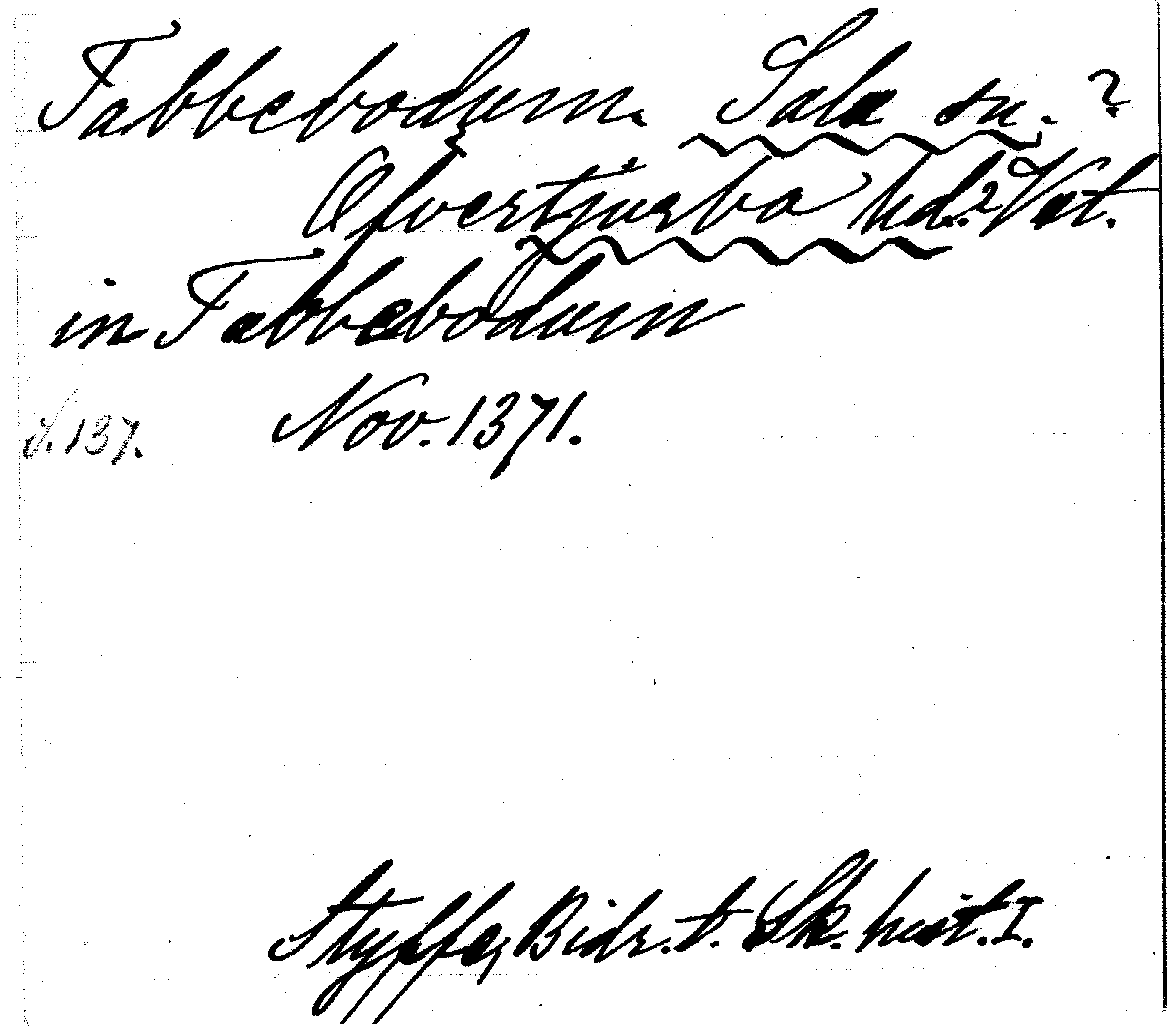 Fabbebodum. Sala sn. ?
Öfvertjurbo hd.? Vstl.
in Fabbebodum
S. 137. Nov. 1371.
Styffe, Bidr. t. Sk. hist. I.